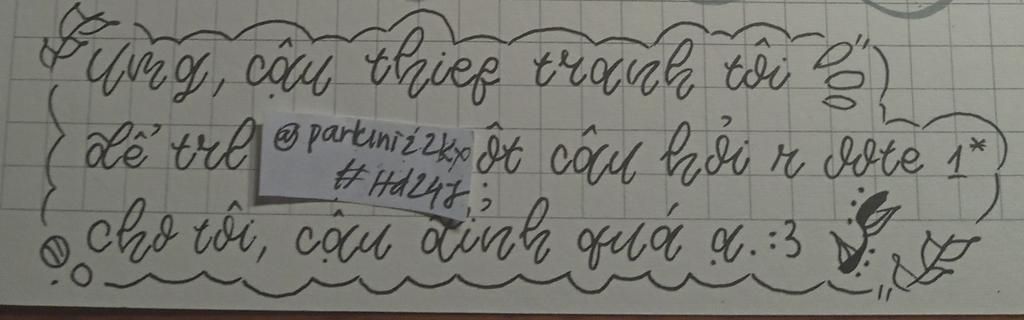 ưng, cậu thief tranh tôi
để trl ột câu hỏi r vote 1*
@parkinii22kxo
#Hd247
cho tôi, cậu đỉnh quá ạ. :3